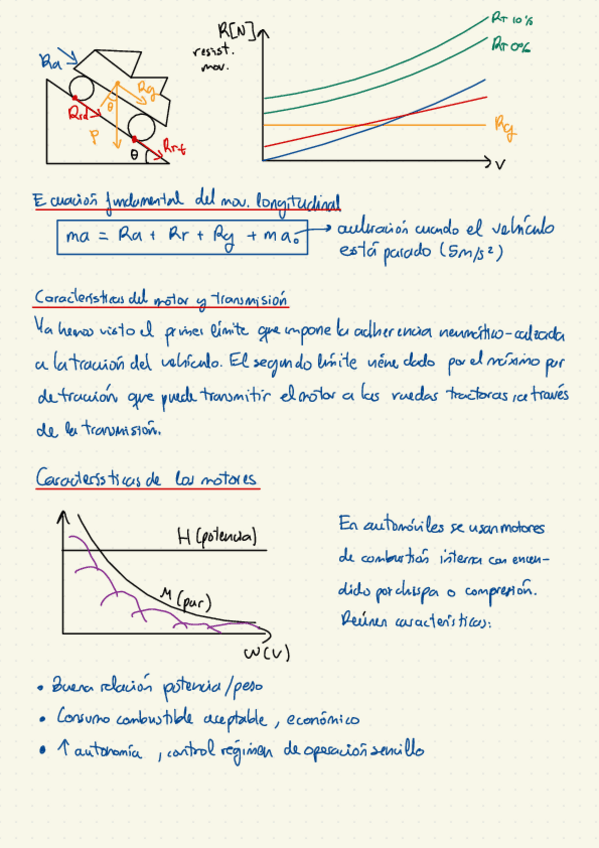 R[N]
resist.
mov.
RT 10%
RT 0%
Ra
Rg
θ
Rrd
P
θ
Rrt
Rg
V
Ecuación fundamental del mov. longitudinal
ma = Ra + Rr + Rg + ma₀ → aceleración cuando el vehículo
está parado (5m/s²)
Características del motor y transmisión
Ya hemos visto el primer límite que impone la adherencia neumático-calzada
a la tracción del vehículo. El segundo límite viene dado por el máximo par
de tracción que puede transmitir el motor a las ruedas tractoras, a través
de la transmisión.
Características de los motores
H (potencia)
M (par)
W(V)
En automóviles se usan motores
de combustión interna con encen-
dido por chispa o compresión.
Reúnen características:
• Buena relación potencia/peso
• Consumo combustible aceptable, económico
• ↑ autonomía, control régimen de operación sencillo